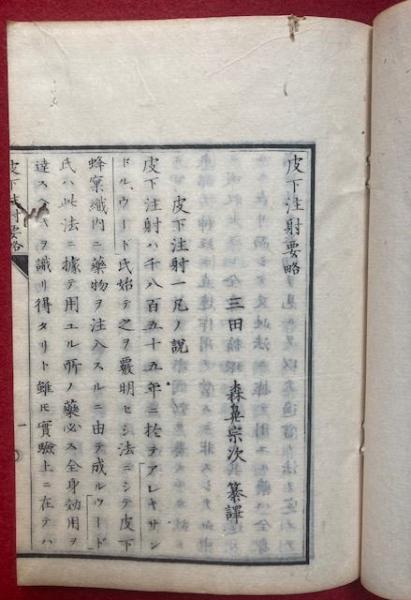 皮下注射要略
三田 森鼻宗次 纂譯
皮下注射一凡ノ説
皮下注射ハ千八百五十五年ニ於テアレキサン
ドル、ウード氏始テ之ヲ發明セシ法ニシテ皮下
蜂窠織内ニ藥物ヲ注入スルニ由テ成ルウード
氏ハ此法ニ據テ用ユル所ノ藥必ス全身効用ヲ
達スヲ識リ得タリト雖𪜈實驗上ニ在テハ
皮下注射要略
一